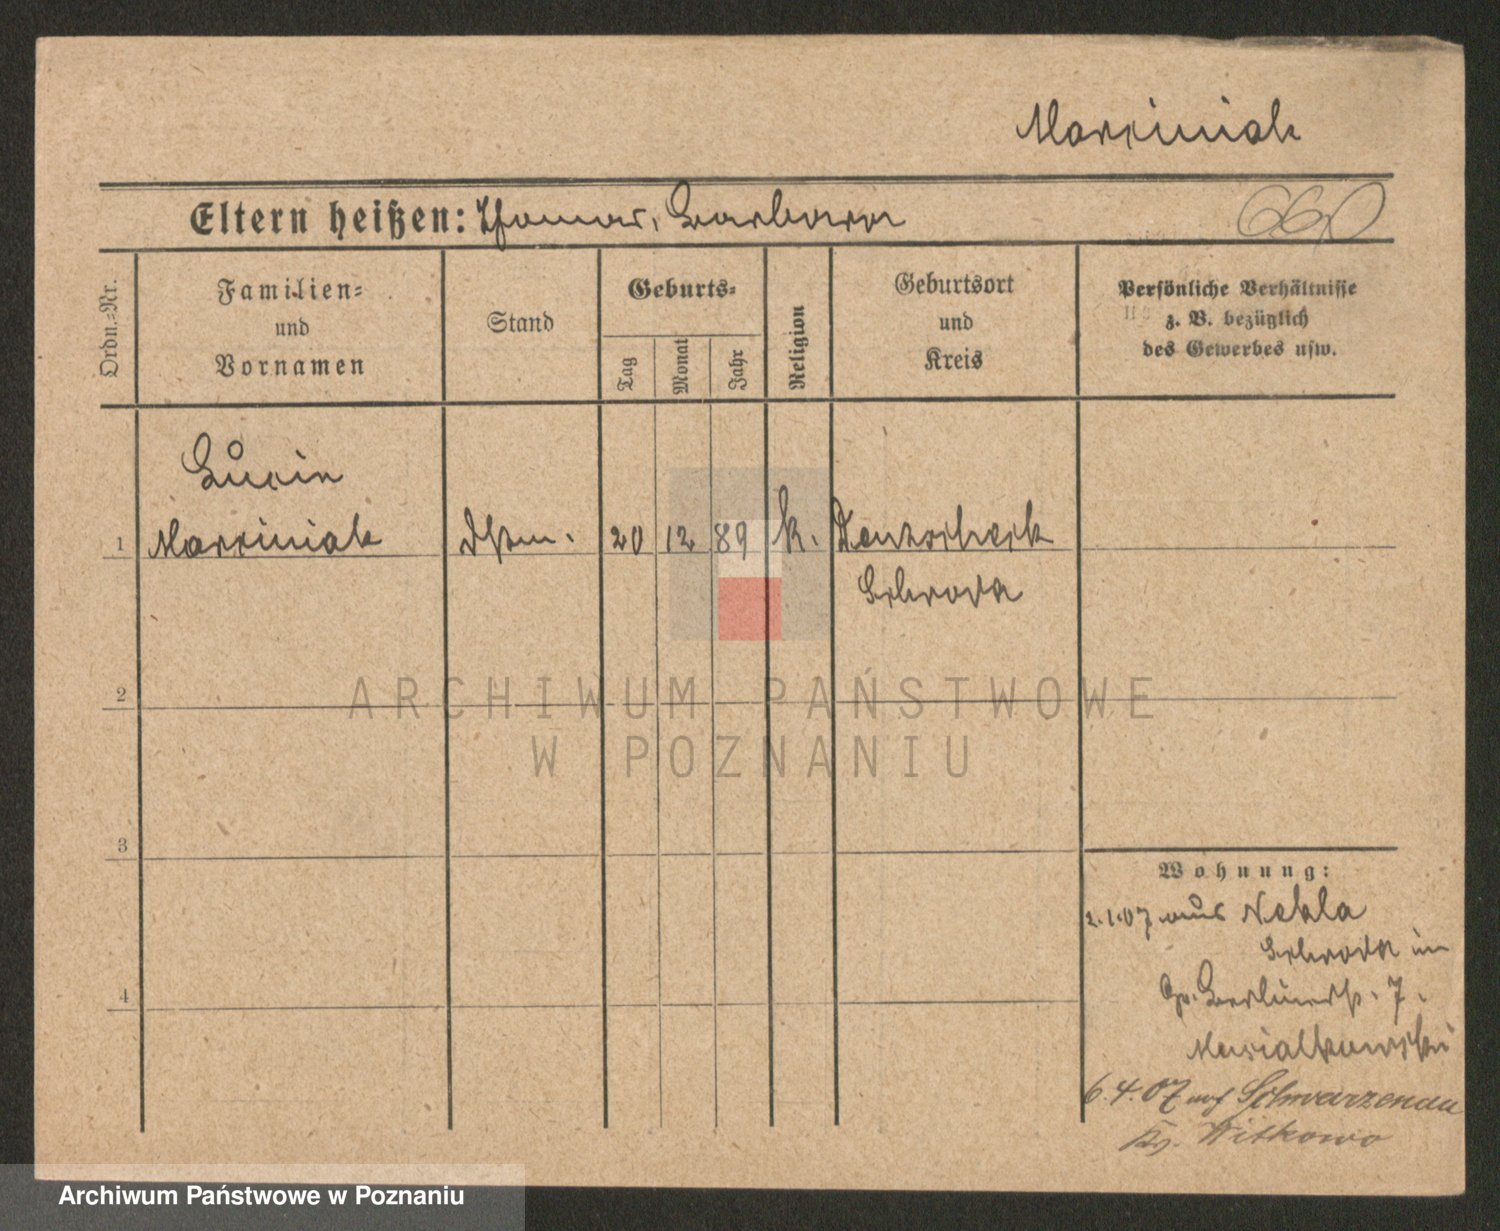 Marciniak
Eltern heißen: Thomas, Barbara
660
Ordn.-Nr.
Familien-
und
Vornamen
Stand
Geburts-
Tag
Monat
Jahr
Religion
Geburtsort
und
Kreis
Persönliche Verhältnisse
z. B. bezüglich
des Gewerbes usw.
Lucie
1 Marciniak 20 12 89 k.
Schroda
2
ARCHIWUM PAŃSTWOWE
W POZNANIU
3
4
Wohnung:
2.1.07 aus Nekla
Schroda in
Gr. Berlinerstr. 7.
6.4.07 auf Schwarzenau
Kr. Witkowo
Archiwum Państwowe w Poznaniu